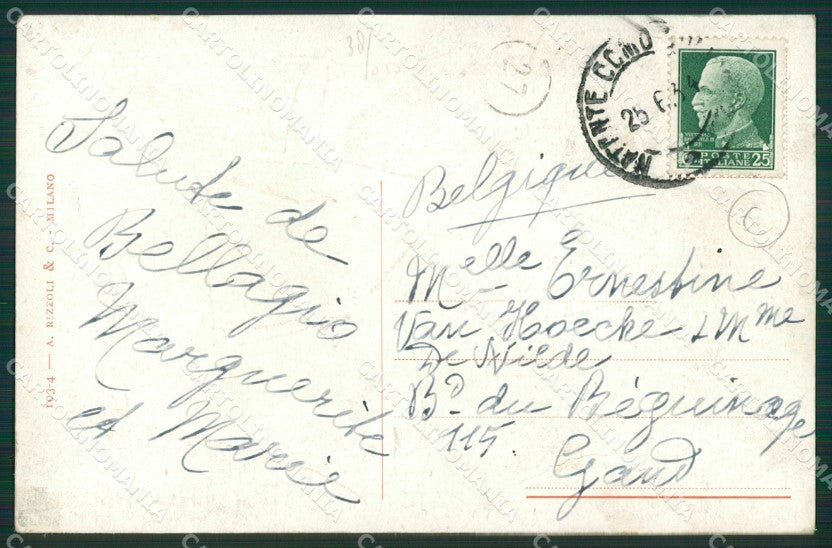 Salute de
Bellagio
Marguerite
et Marie
193-4 — A. RIZZOLI & C. - MILANO
381
27
25 6 34
POSTE
ITALIANE 25
C
Belgique
Melle Ernestine
Van Hoecke & Mme
De Wilde
Bd du Béguinage
115
Gand
CARTOLINOMANIA